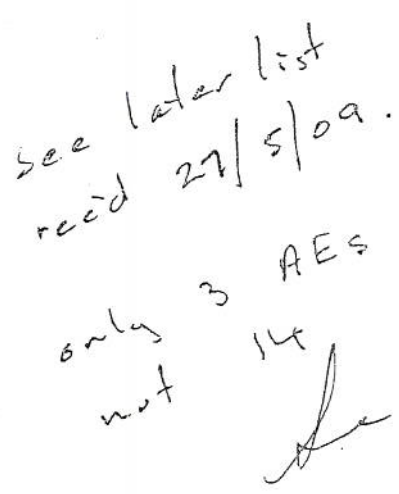 see later list
rec'd 27/5/09.
only 3 AEs
not 14